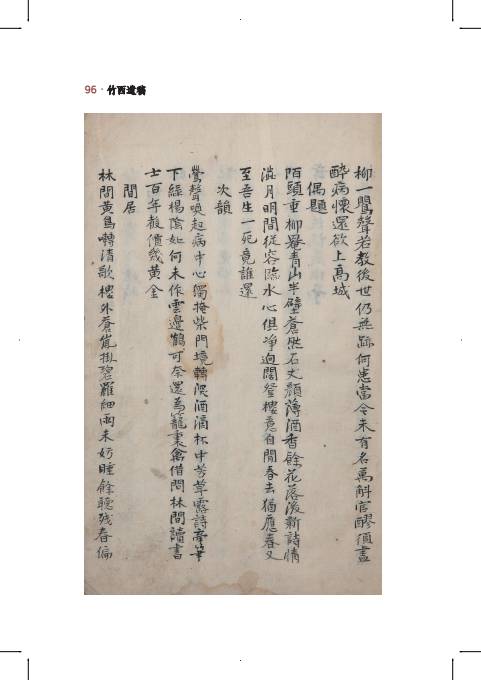 96 · 竹西遺稿
柳一鸎聲若敎後世仍無跡何患當今未有名萬斛官醪須盡
醉病懷還欲上高城
偶題
陌頭垂柳罨青山半壁蒼然石丈顏薄酒香餘花落後新詩情
澁月明間從容臨水心俱淨逈闊登樓意自閒春去猶應春又
至吾生一死竟誰還
次韻
鶯聲喚起病中心獨掩柴門境轉深酒滴杯中芳草露詩牽筆
下綠楊陰如何未作雲邊鶴可奈還爲籠裏禽借問林間讀書
士百年報價幾黃金
閒居
林間黃鳥囀清歌樓外蒼嵐掛碧羅細雨未妨睡餘聽殘春偏